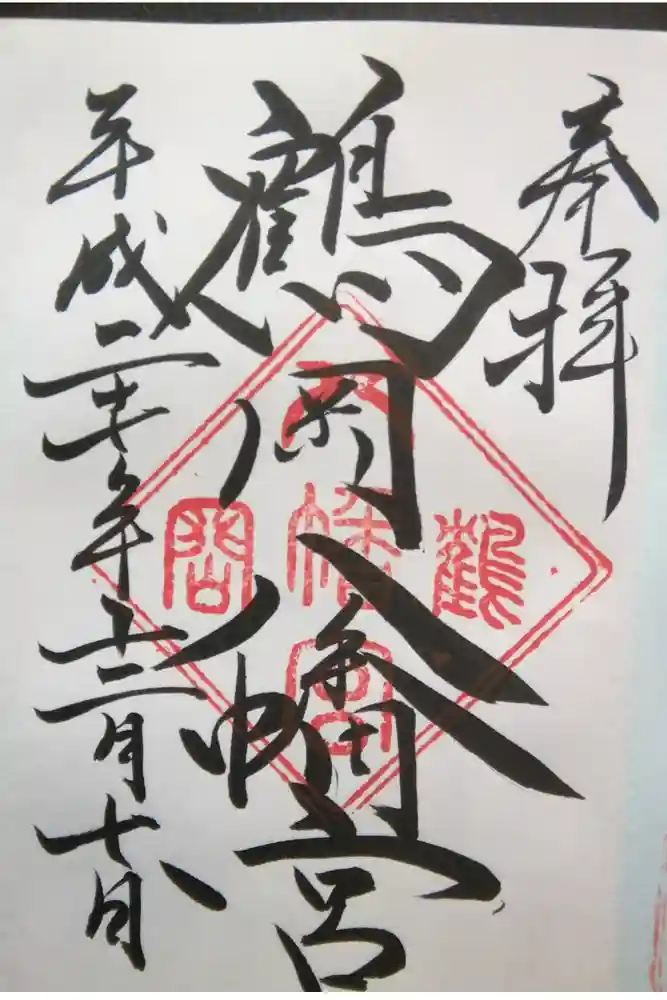 奉拝
鶴岡八幡宮
平成二十七年十二月十八日
鶴
八幡宮
岡